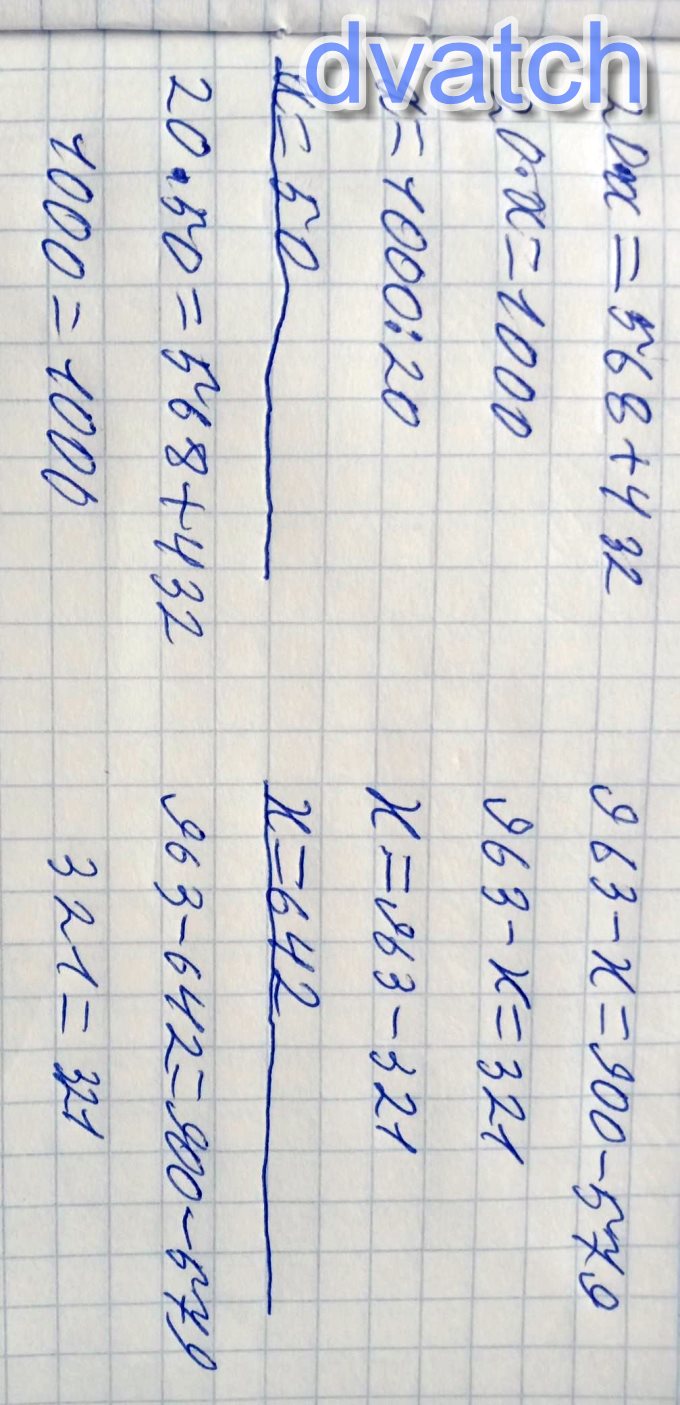 dvatch
20·x=568+432
20·x=1000
x=1000:20
x=50
20·50=568+432
1000=1000
963-x=900-579
963-x=321
x=963-321
x=642
963-642=900-579
321=321